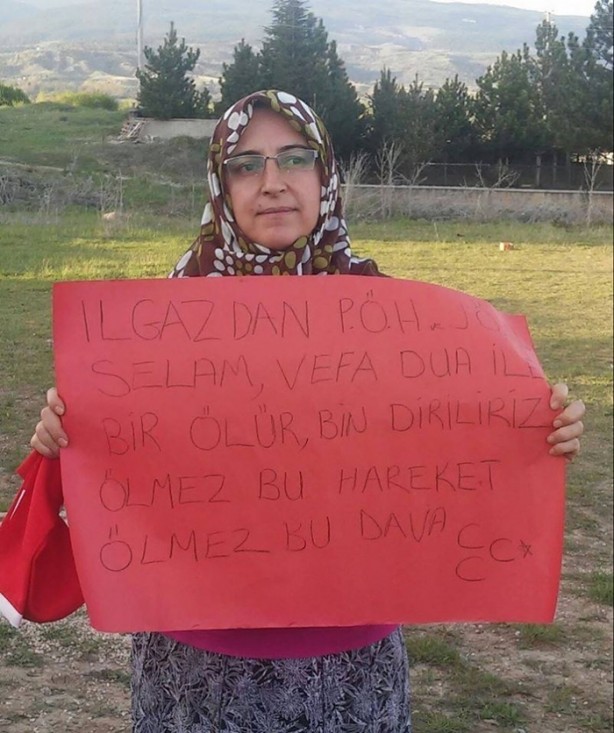 ILGAZDAN P.Ö.H ve JÖ
SELAM, VEFA DUA İLE
BİR ÖLÜR, BİN DİRİLİRİZ
ÖLMEZ BU HAREKET
ÖLMEZ BU DAVA
CCC